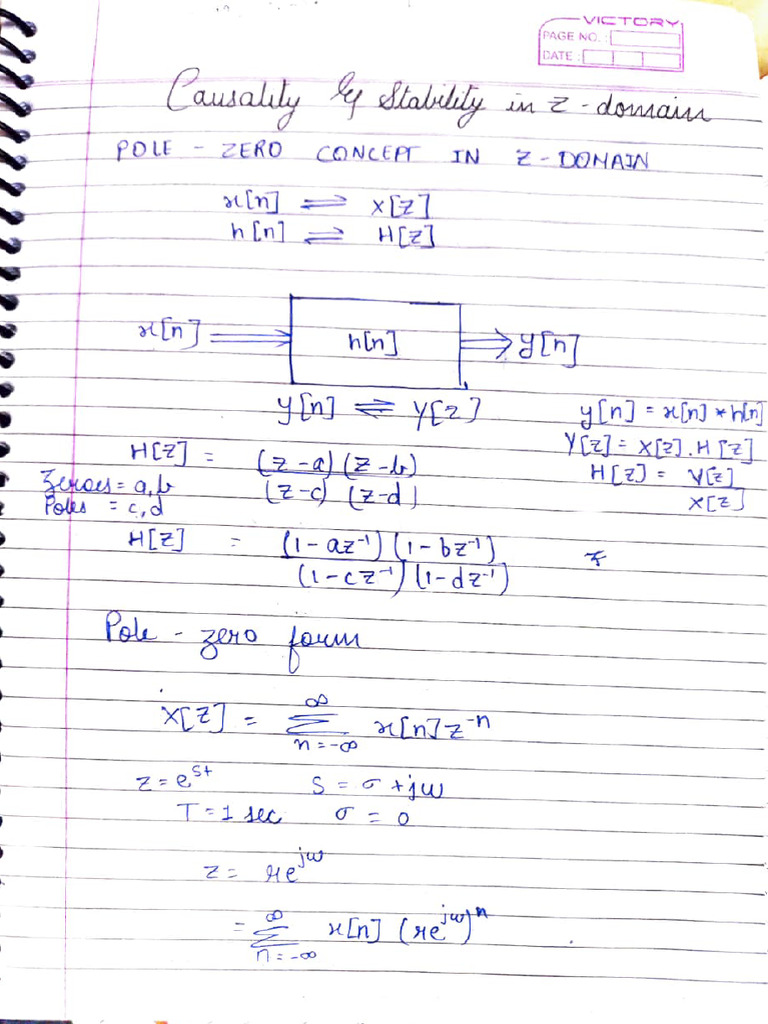 VICTORY
PAGE NO. :
DATE :
Causality & Stability in z-domain
POLE - ZERO CONCEPT IN Z-DOMAIN
x[n] ⇌ X[Z]
h[n] ⇌ H[Z]
x[n] ⇒ h[n] ⇒ y[n]
y[n] ⇌ Y[z]
y[n] = x[n] * h[n]
Y[z] = X[z] . H[z]
H[z] = Y[z]
X[z]
H[z] = (z-a) (z-b)
(z-c) (z-d)
Zeroes = a,b
Poles = c,d
H[z] = (1-az⁻¹) (1-bz⁻¹)
(1-cz⁻¹) (1-dz⁻¹)
Pole - zero form
X[Z] = ∞ Σ n=-∞ x[n] z⁻ⁿ
z = e^st S = σ + jω
T = 1 sec σ = 0
z = re^jω
= ∞ Σ n=-∞ x[n] (re^jω)^n